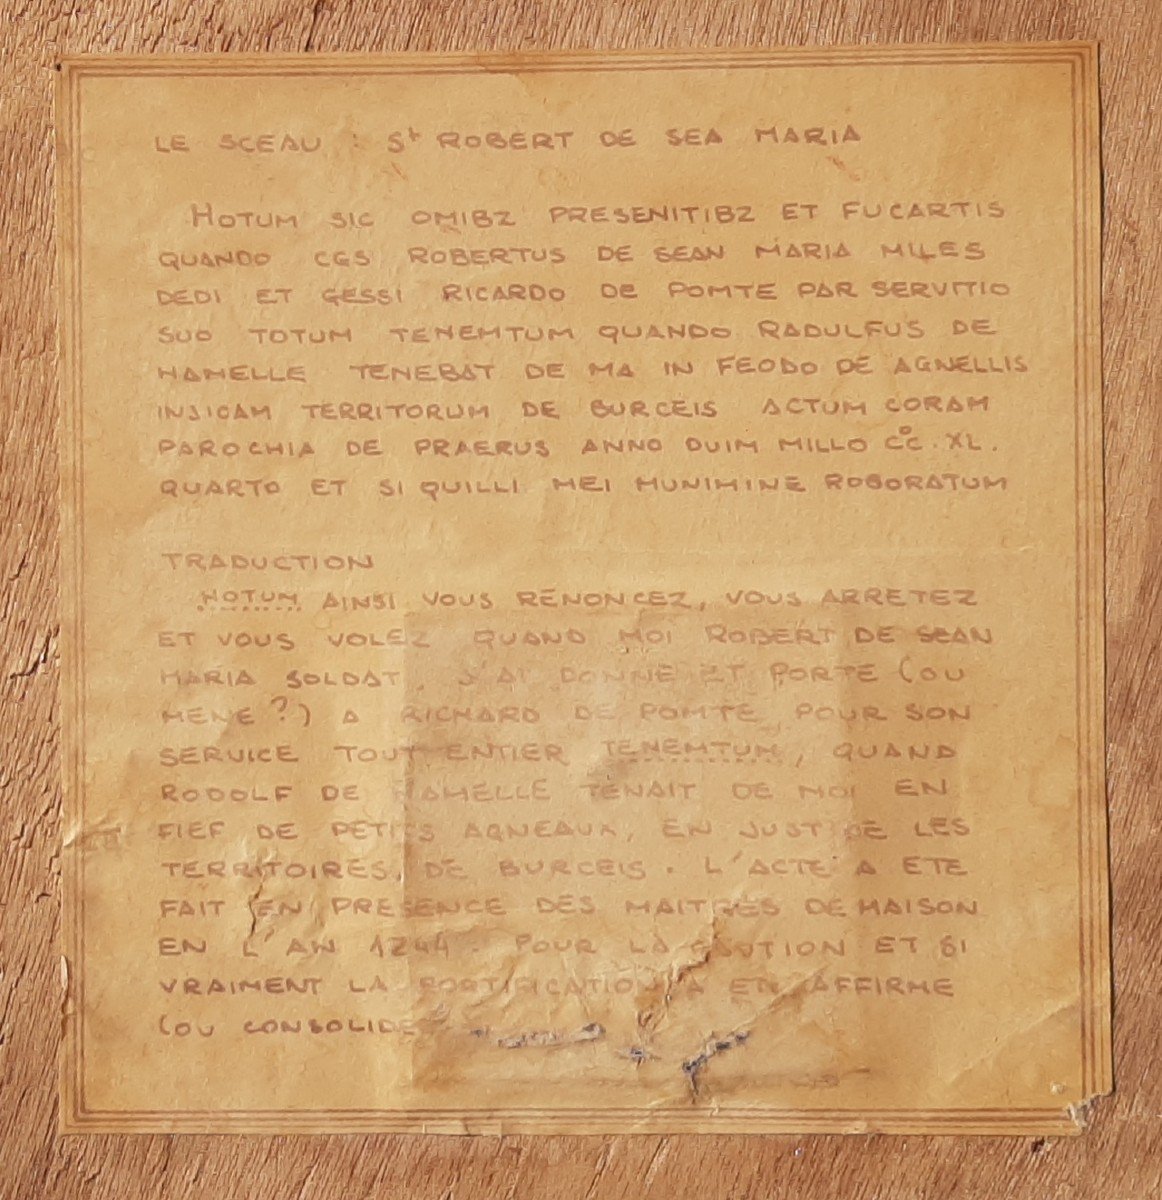 LE SCEAU : St ROBERT DE SEA MARIA
HOTUM SIC OMIBZ PRESENITIBZ ET FUCARTIS
QUANDO CGS ROBERTUS DE SEAN MARIA MILES
DEDI ET GESSI RICARDO DE POMTE PAR SERVITIO
SUO TOTUM TENEMTUM QUANDO RADULFUS DE
HAMELLE TENEBAT DE MA IN FEODO DE AGNELLIS
INJICAM TERRITORUM DE BURCEIS ACTUM CORAM
PAROCHIA DE PRAERUS ANNO DUIM MILLO C°C. XL.
QUARTO ET SI QUILLI MEI MUNIMINE ROBORATUM
TRADUCTION
HOTUM AINSI VOUS RENONCEZ, VOUS ARRETEZ
ET VOUS VOLEZ QUAND MOI ROBERT DE SEAN
MARIA SOLDAT, J'AI DONNE ET PORTE (OU
MENE ?) A RICHARD DE POMTE POUR SON
SERVICE TOUT ENTIER TENEMTUM, QUAND
RODOLF DE HAMELLE TENAIT DE MOI EN
FIEF DE PETITS AGNEAUX, EN JUSTICE LES
TERRITOIRES, DE BURCEIS. L'ACTE A ETE
FAIT EN PRESENCE DES MAITRES DE MAISON
EN L'AN 1244. POUR LA CAUTION ET SI
VRAIMENT LA FORTIFICATION A EN AFFIRME
(OU CONSOLIDE